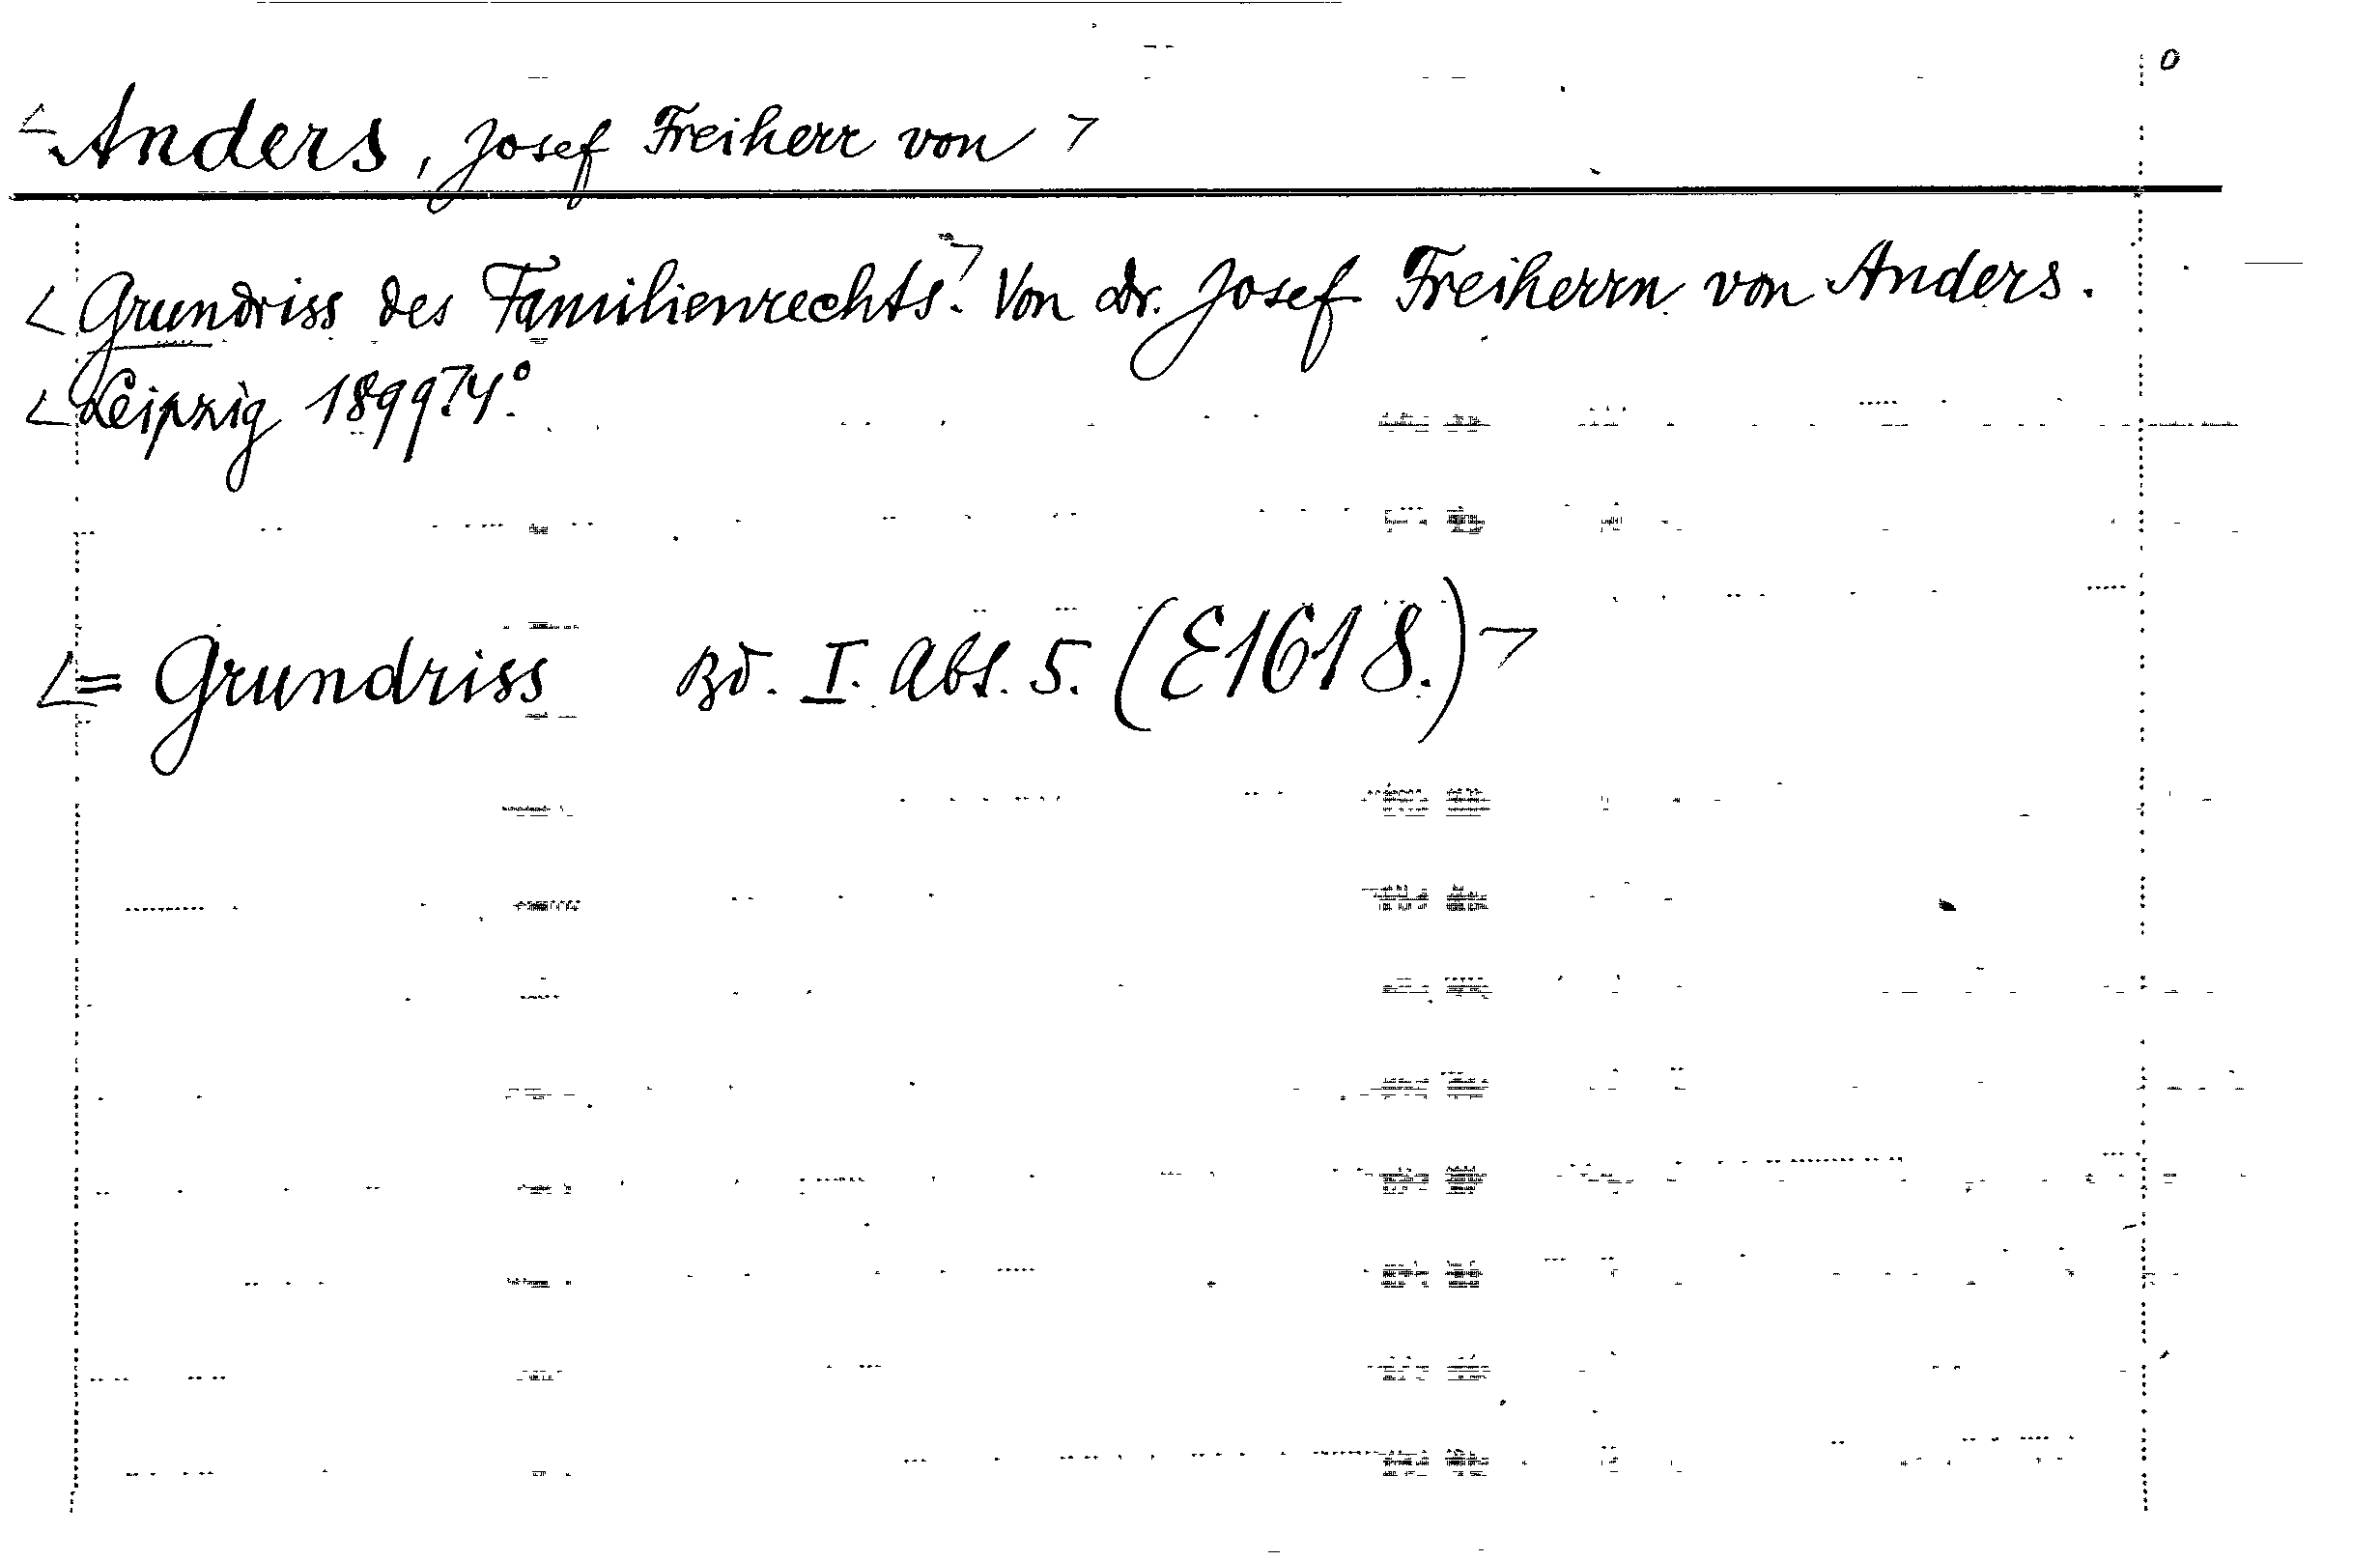 <Anders, Josef Freiherr von>
<Grundriss des Familienrechts.> Von Dr. Josef Freiherrn von Anders.
<Leipzig 1899.> 4°.
<= Grundriss Bd. I. Abt. 5. (E1618.)>